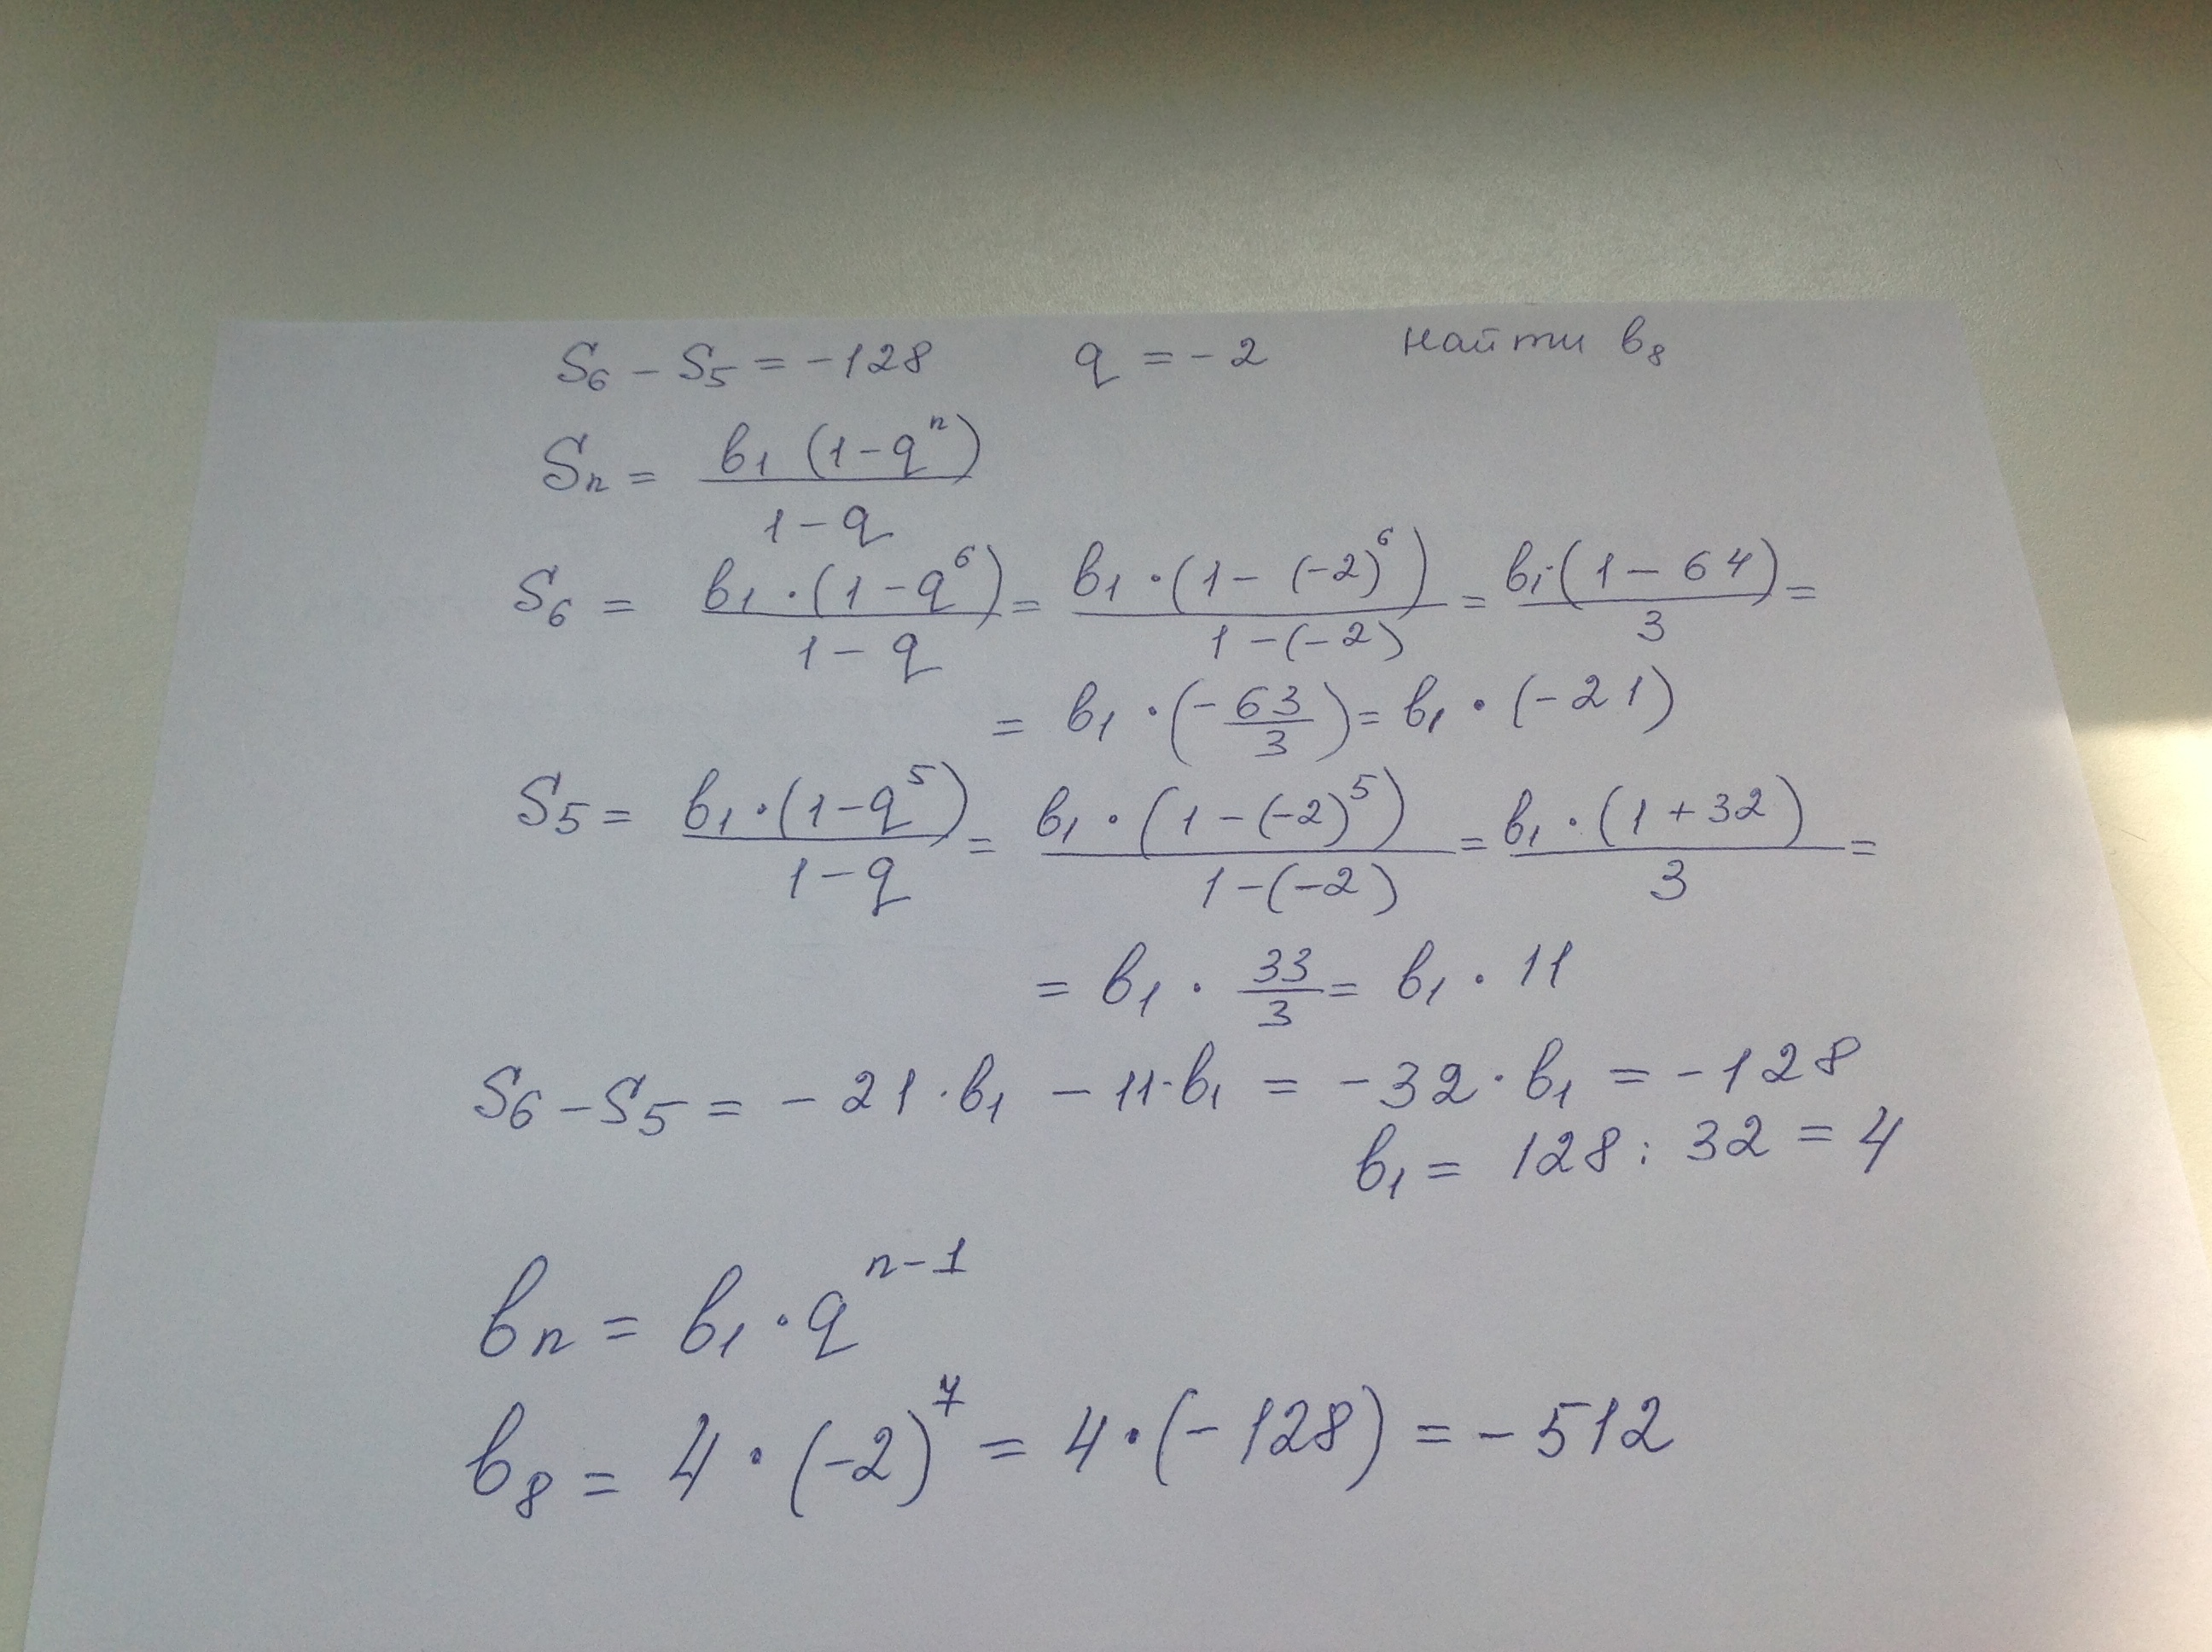 S₆ – S₅ = –128 q = –2 найти b₈
Sₙ = b₁ (1–qⁿ) / 1–q
S₆ = b₁ · (1–q⁶) / 1–q = b₁ · (1– (–2)⁶) / 1–(–2) = b₁·(1–64) / 3 =
= b₁ · (– 63/3) = b₁ · (–21)
S₅ = b₁ · (1–q⁵) / 1–q = b₁ · (1–(–2)⁵) / 1–(–2) = b₁ · (1+32) / 3 =
= b₁ · 33/3 = b₁ · 11
S₆ – S₅ = – 21 · b₁ – 11 · b₁ = – 32 · b₁ = –128
b₁ = 128 : 32 = 4
bₙ = b₁ · qⁿ⁻¹
b₈ = 4 · (–2)⁷ = 4 · (–128) = –512